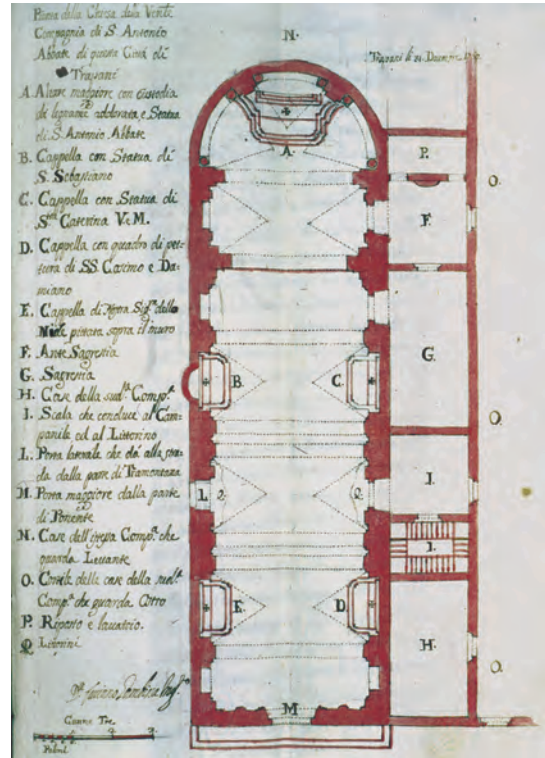 Pianta della Chiesa della Venle
Compagnia di S. Antonio
Abbate di questa Città di
Trapani
A. Altare maggiore con custodia
di legname addorata, e Statua
di S. Antonio Abbate
B. Cappella con Statua di
S. Sebastiano
C. Cappella con Statua di
Sta Caterina V. e M.
D. Cappella con quadro di pit-
tura di SS. Cosimo e Da-
miano
E. Cappella di Nra Sigra della
pittata sopra il muro
F. Ante Sagrestia
G. Sagrestia
H. Case della sudta Compa
I. Scala che conduce al Cam-
panile ed al Littorino
L. Porta laterale che dà alla stra-
da dalla parte di Tramontana
M. Porta maggiore dalla parte
di Ponente
N. Case dell'istessa Compa che
guarda Levante
O. Cortile delle case della sudta
Compa che guarda
P. Riposto e lavatoio.
Q. Littorini
Canne Tre
Palmi
N.
Trapani li 21 Decembre
A.
P.
O.
F.
B.
C.
G.
O.
L
Q.
Q.
I.
I.
E.
D.
H.
O.
M